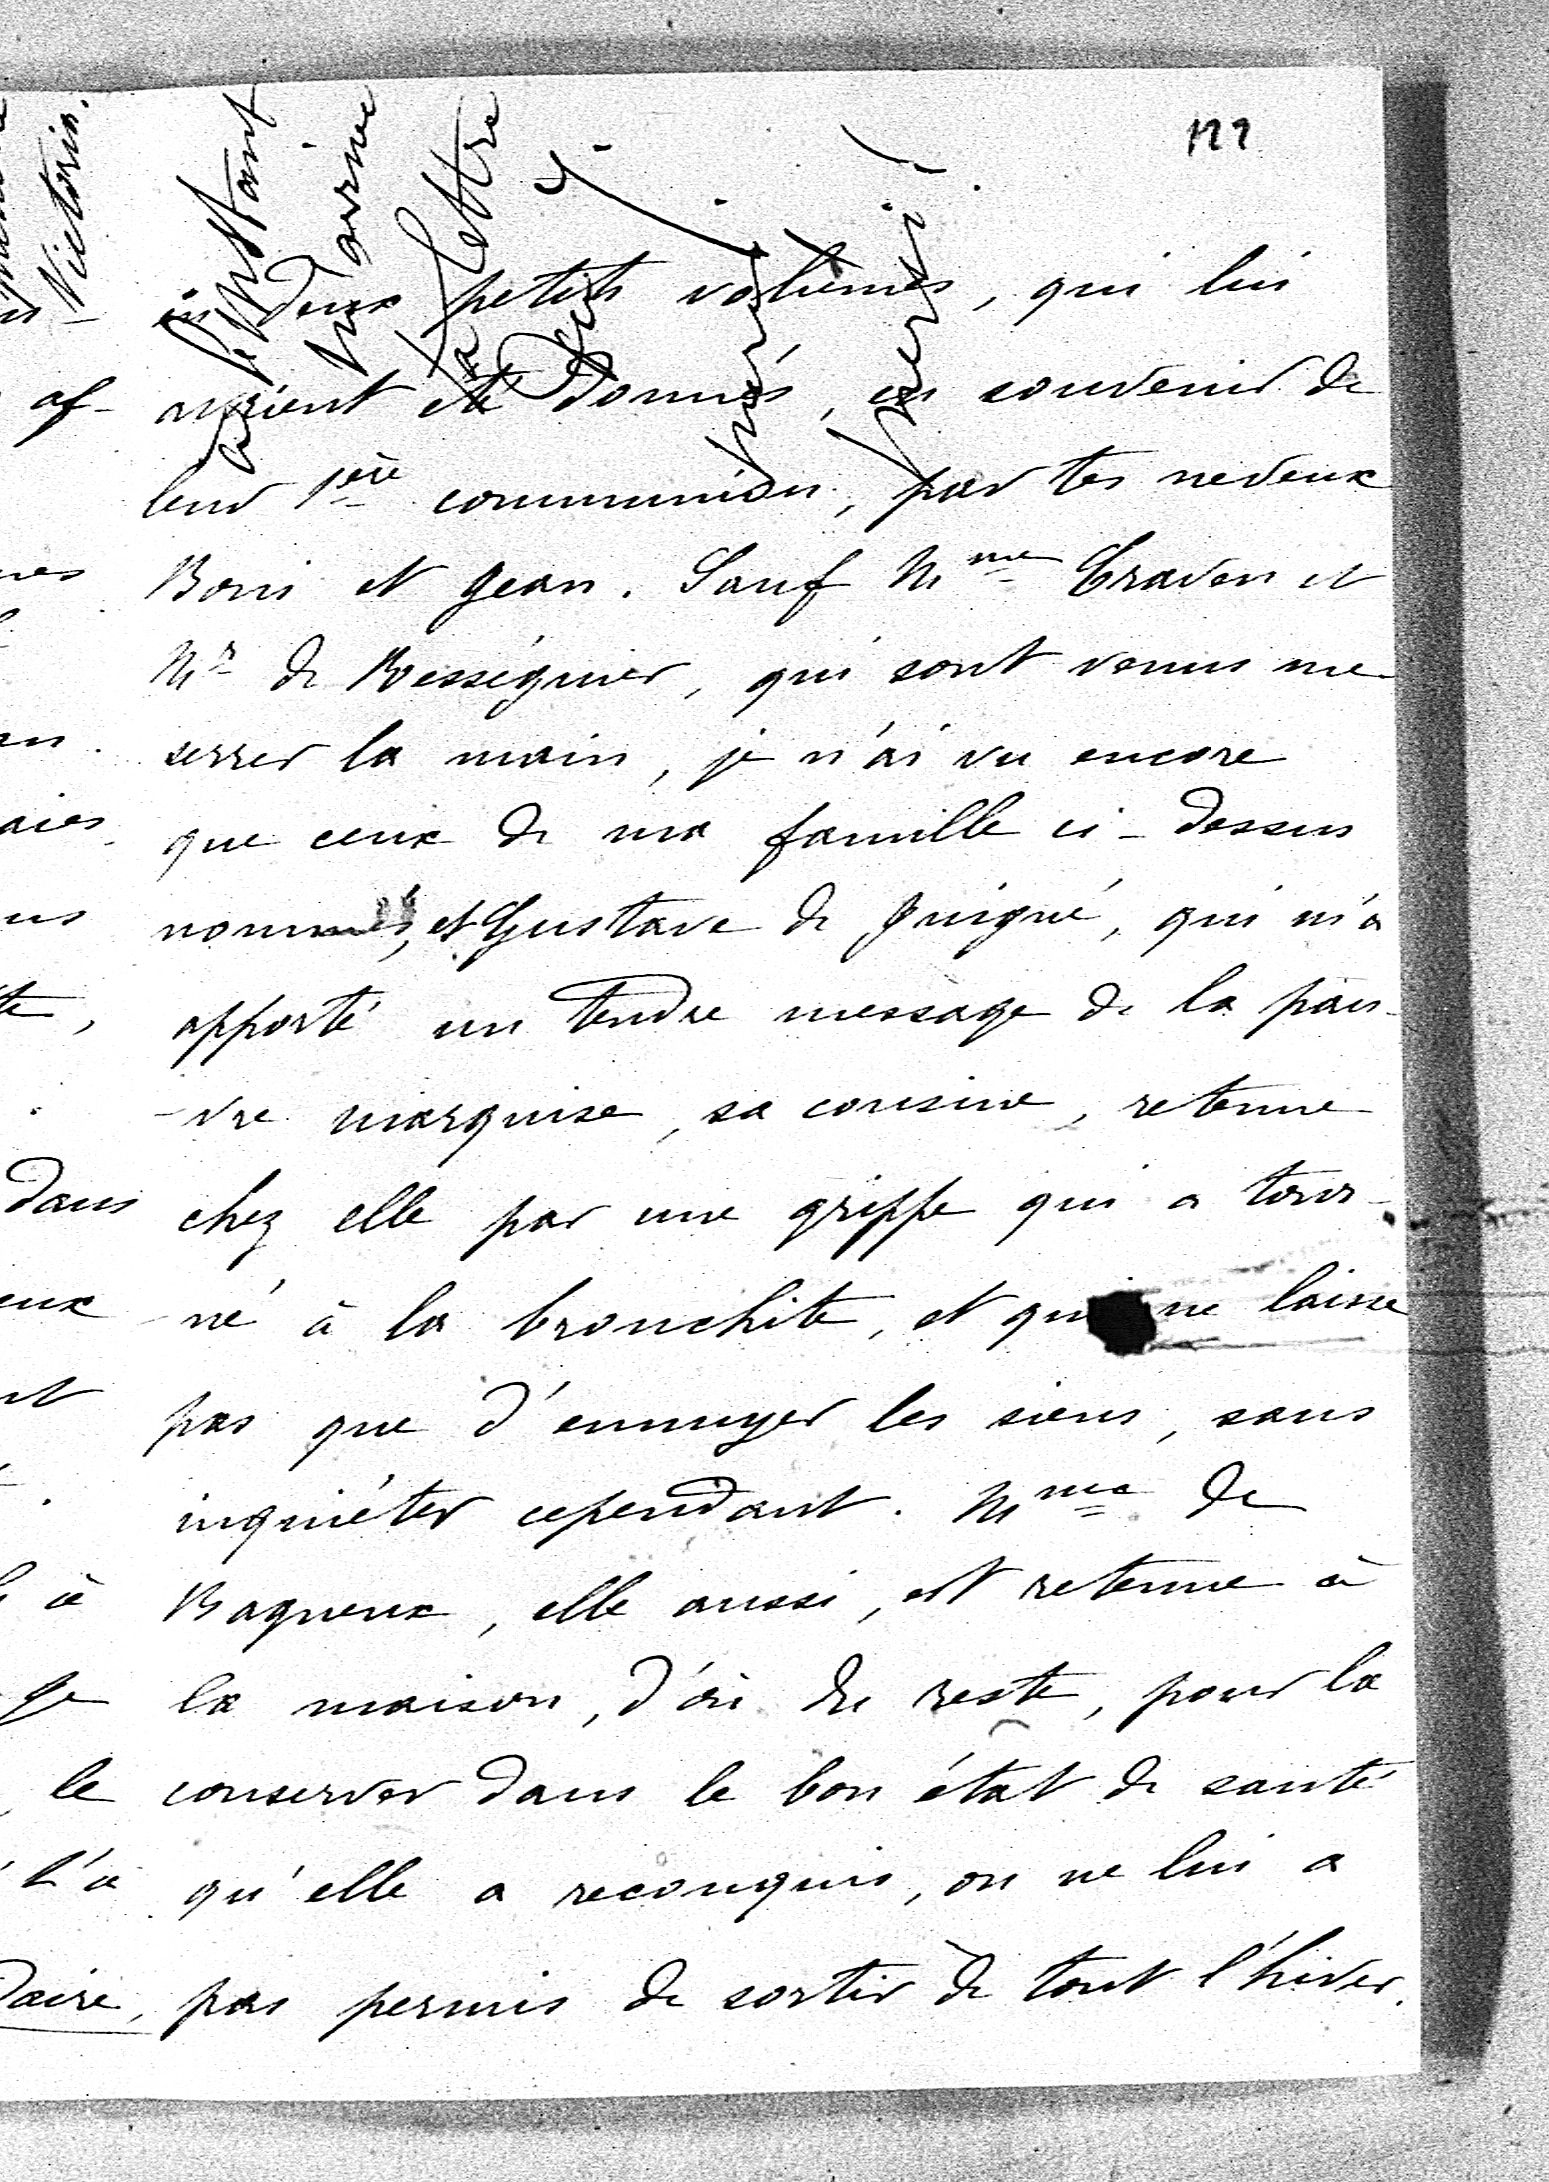 122
Victoria.
à l'instant
m'arrive
ta lettre
du 4.
merci,
merci!
deux petits volumes, qui lui
avaient été donnés, en souvenir de
leur 1ère communion, par tes neveux
Boris et Jean. Sauf Mme Craven et
Mr de Rességuier, qui sont venus me
serrer la main, je n'ai vu encore
que ceux de ma famille ci-dessus
nommés, et Gustave de Juigné, qui m'a
apporté un tendre message de la pau-
-vre marquise, sa cousine, retenue
chez elle par une grippe qui a tour-
né à la bronchite, et qui ne laisse
pas que d'ennuyer les siens, sans
inquiéter cependant. Mme de
Bagneux, elle aussi, est retenue à
la maison, d'où du reste, pour la
conserver dans le bon état de santé
qu'elle a reconquis, on ne lui a
pas permis de sortir de tout l'hiver.